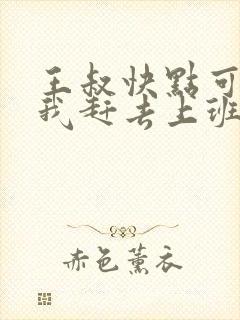 王叔快點可
我赶去上班
赤色薰衣